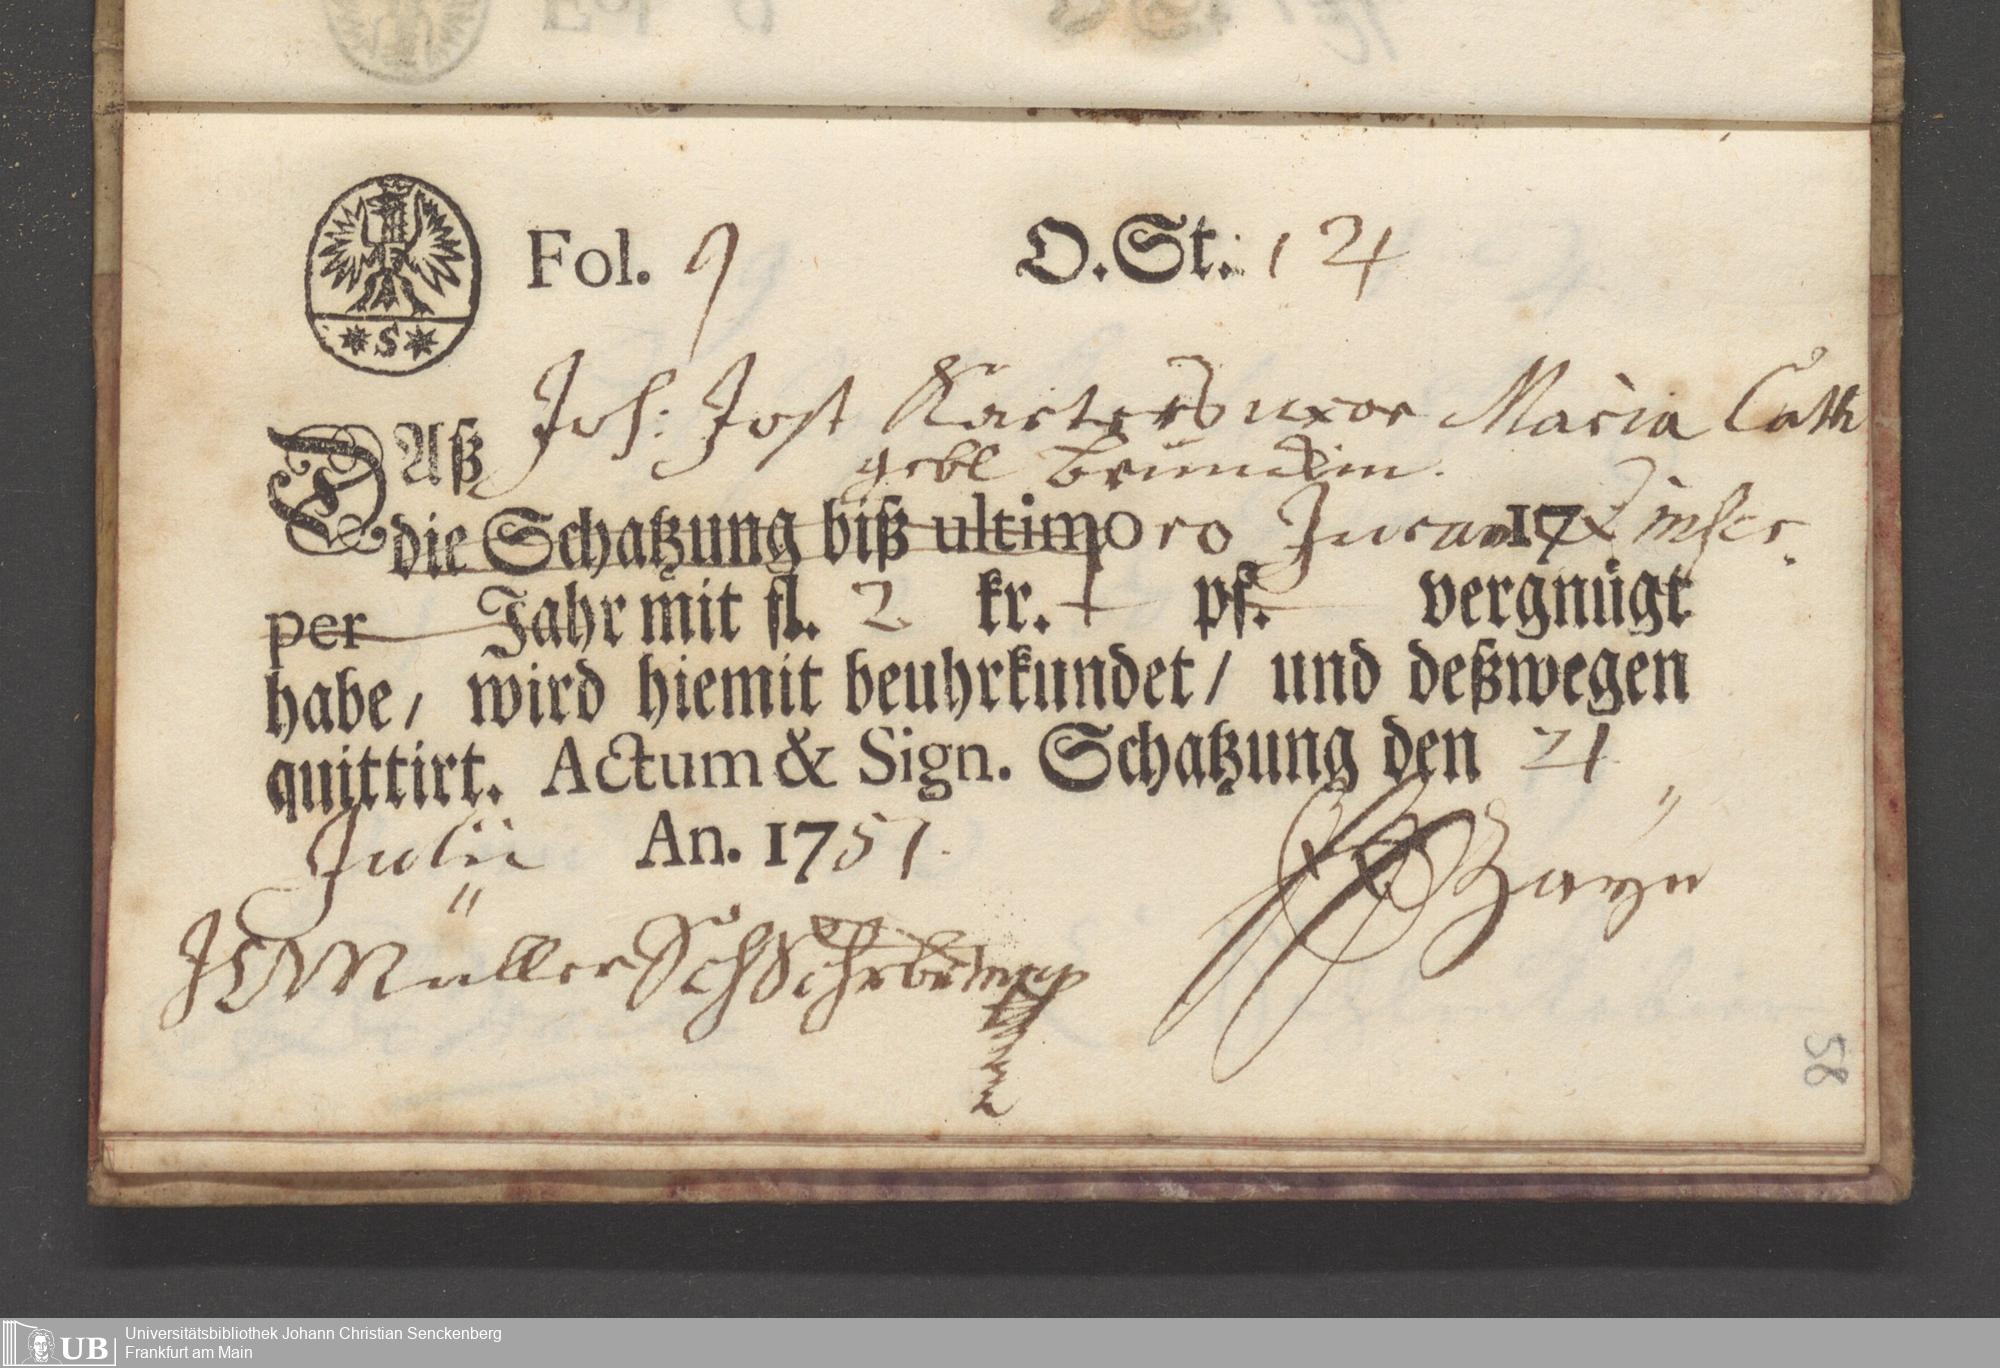 Fol. 9 O.St: 124
Joh: Jost Karters uxor Maria Cath
DAß
gebl Bründlin.
die Schatzung biß ultimo ro Juram 17 Inscr.
per Jahr mit fl. 2 kr. pf. vergnügt
habe/ wird hiemit beuhrkundet/ und deßwegen
quittirt. Actum & Sign. Schatzung den 21
Julii An. 1751.
Müller
*S*
58
Universitätsbibliothek Johann Christian Senckenberg
UB
Frankfurt am Main